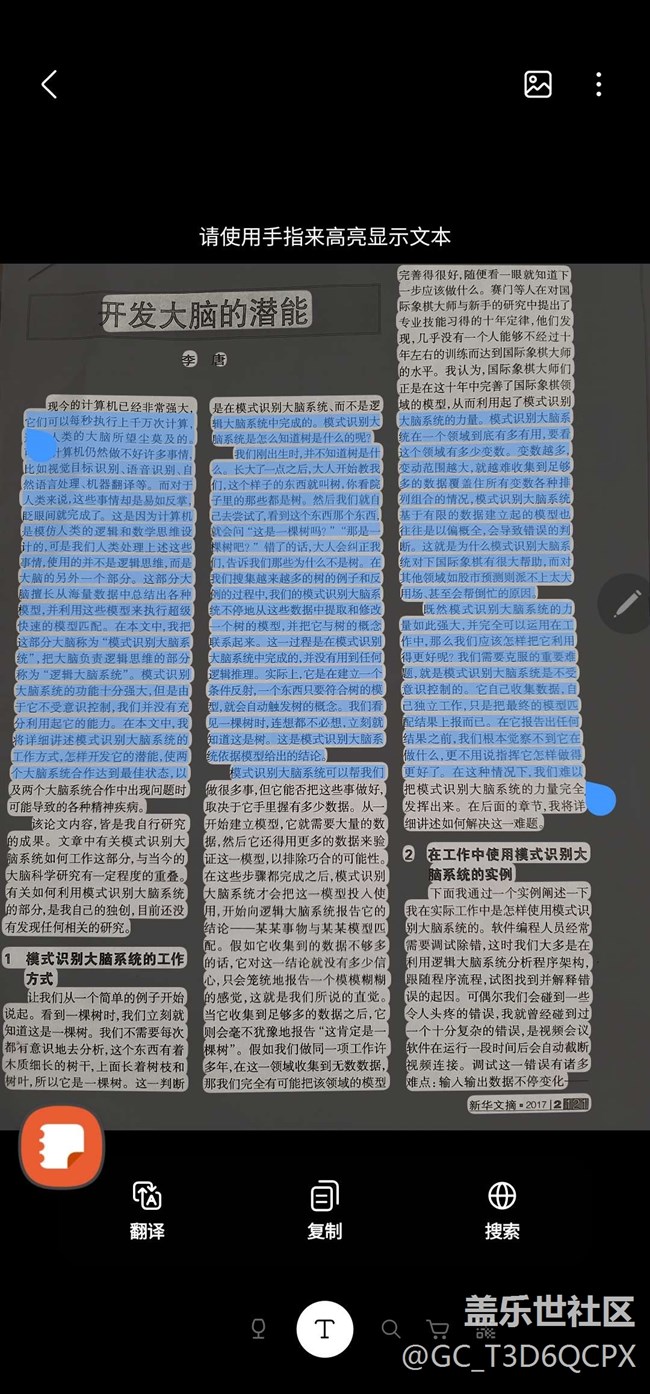 请使用手指来高亮显示文本
开发大脑的潜能
李 唐
现今的计算机已经非常强大，
它们可以每秒执行上千万次计算，
人类的大脑所望尘莫及的。
计算机仍然做不好许多事情，
比如视觉目标识别、语音识别、自
然语言处理、机器翻译等。而对于
人类来说，这些事情却是易如反掌，
眨眼间就完成了。这是因为计算机
是模仿人类的逻辑和数学思维设
计的，可是我们人类处理上述这些
事情，使用的并不是逻辑思维，而是
大脑的另外一个部分。这部分大
脑擅长从海量数据中总结出各种
模型，并利用这些模型来执行超级
快速的模型匹配。在本文中，我把
这部分大脑称为“模式识别大脑系
统”，把大脑负责逻辑思维的部分
称为“逻辑大脑系统”。模式识别
大脑系统的功能十分强大，但是由
于它不受意识控制，我们并没有充
分利用起它的能力。在本文中，我
将详细讲述模式识别大脑系统的
工作方式，怎样开发它的潜能，使两
个大脑系统合作达到最佳状态，以
及两个大脑系统合作中出现问题时
可能导致的各种精神疾病。
该论文内容，皆是我自行研究
的成果。文章中有关模式识别大
脑系统如何工作这部分，与当今的
大脑科学研究有一定程度的重叠。
有关如何利用模式识别大脑系统
的部分，是我自己的独创，目前还没
有发现任何相关的研究。
1 模式识别大脑系统的工作
方式
让我们从一个简单的例子开始
说起。看到一棵树时，我们立刻就
知道这是一棵树。我们不需要每次
都有意识地去分析，这个东西有着
木质细长的树干，上面长着树枝和
树叶，所以它是一棵树。这一判断
是在模式识别大脑系统、而不是逻
辑大脑系统中完成的。模式识别大
脑系统是怎么知道树是什么的呢？
我们刚出生时，并不知道树是什
么。长大了一点之后，大人开始教我
们，这个样子的东西就叫树，你看院
子里的那些都是树。然后我们就自
己去尝试了，看到这个东西那个东西，
就会问“这是一棵树吗？”“那是一
棵树吧？”错了的话，大人会纠正我
们，告诉我们那些为什么不是树。在
我们搜集越来越多的树的例子和反
例的过程中，我们的模式识别大脑系
统不停地从这些数据中提取和修改
一个树的模型，并把它与树的概念
联系起来。这一过程是在模式识别
大脑系统中完成的，并没有用到任何
逻辑推理。实际上，它是在建立一个
条件反射，一个东西只要符合树的模
型，就会自动触发树的概念。我们看
见一棵树时，连想都不必想，立刻就
知道这是树。这是模式识别大脑系
统依据模型给出的结论。
模式识别大脑系统可以帮我们
做很多事，但它能否把这些事做好，
取决于它手里握有多少数据。从一
开始建立模型，它就需要大量的数
据，然后它还得用更多的数据来验
证这一模型，以排除巧合的可能性。
在这些步骤都完成之后，模式识别
大脑系统才会把这一模型投入使
用，开始向逻辑大脑系统报告它的
结论——某某事物与某某模型匹
配。假如它收集到的数据不够多
的话，它对这一结论就没有多少信
心，只会笼统地报告一个模模糊糊
的感觉，这就是我们所说的直觉。
当它收集到足够多的数据之后，它
则会毫不犹豫地报告“这肯定是一
棵树”。假如我们做同一项工作许
多年，在这一领域收集到无数数据，
那我们完全有可能把该领域的模型
完善得很好，随便看一眼就知道下
一步应该做什么。赛门等人在对国
际象棋大师与新手的研究中提出了
专业技能习得的十年定律，他们发
现，几乎没有一个人能够不经过十
年左右的训练而达到国际象棋大师
的水平。我认为，国际象棋大师们
正是在这十年中完善了国际象棋领
域的模型，从而利用起了模式识别
大脑系统的力量。模式识别大脑系
统在一个领域到底有多有用，要看
这个领域有多少变数。变数越多，
变动范围越大，就越难收集到足够
多的数据覆盖住所有变数各种排
列组合的情况，模式识别大脑系统
基于有限的数据建立起的模型也
往往是以偏概全，会导致错误的判
断。这就是为什么模式识别大脑系
统对下国际象棋有很大帮助，而对
其他领域如股市预测则派不上太大
用场，甚至会帮倒忙的原因。
既然模式识别大脑系统的力
量如此强大，并完全可以运用在工
作中，那么我们应该怎样把它利用
得更好呢？我们需要克服的重要难
题，就是模式识别大脑系统是不受
意识控制的。它自己收集数据，自
己独立工作，只是把最终的模型匹
配结果上报而已。在它报告出任何
结果之前，我们根本觉察不到它在
做什么，更不用说指挥它怎样做得
更好了。在这种情况下，我们难以
把模式识别大脑系统的力量完全
发挥出来。在后面的章节，我将详
细讲述如何解决这一难题。
2 在工作中使用模式识别大
脑系统的实例
下面我通过一个实例阐述一下
我在实际工作中是怎样使用模式识
别大脑系统的。软件编程人员经常
需要调试除错，这时我们大多是在
利用逻辑大脑系统分析程序架构，
跟随程序流程，试图找到并解释错
误的起因。可偶尔我们会碰到一些
令人头疼的错误，我就曾经碰到过
一个十分复杂的错误，是视频会议
软件在运行一段时间后会自动截断
视频连接。调试这一错误有诸多
难点：输入输出数据不停变化——
新华文摘·2017｜2 121
翻译
复制
搜索
T
盖乐世社区
@GC_T3D6QCPX